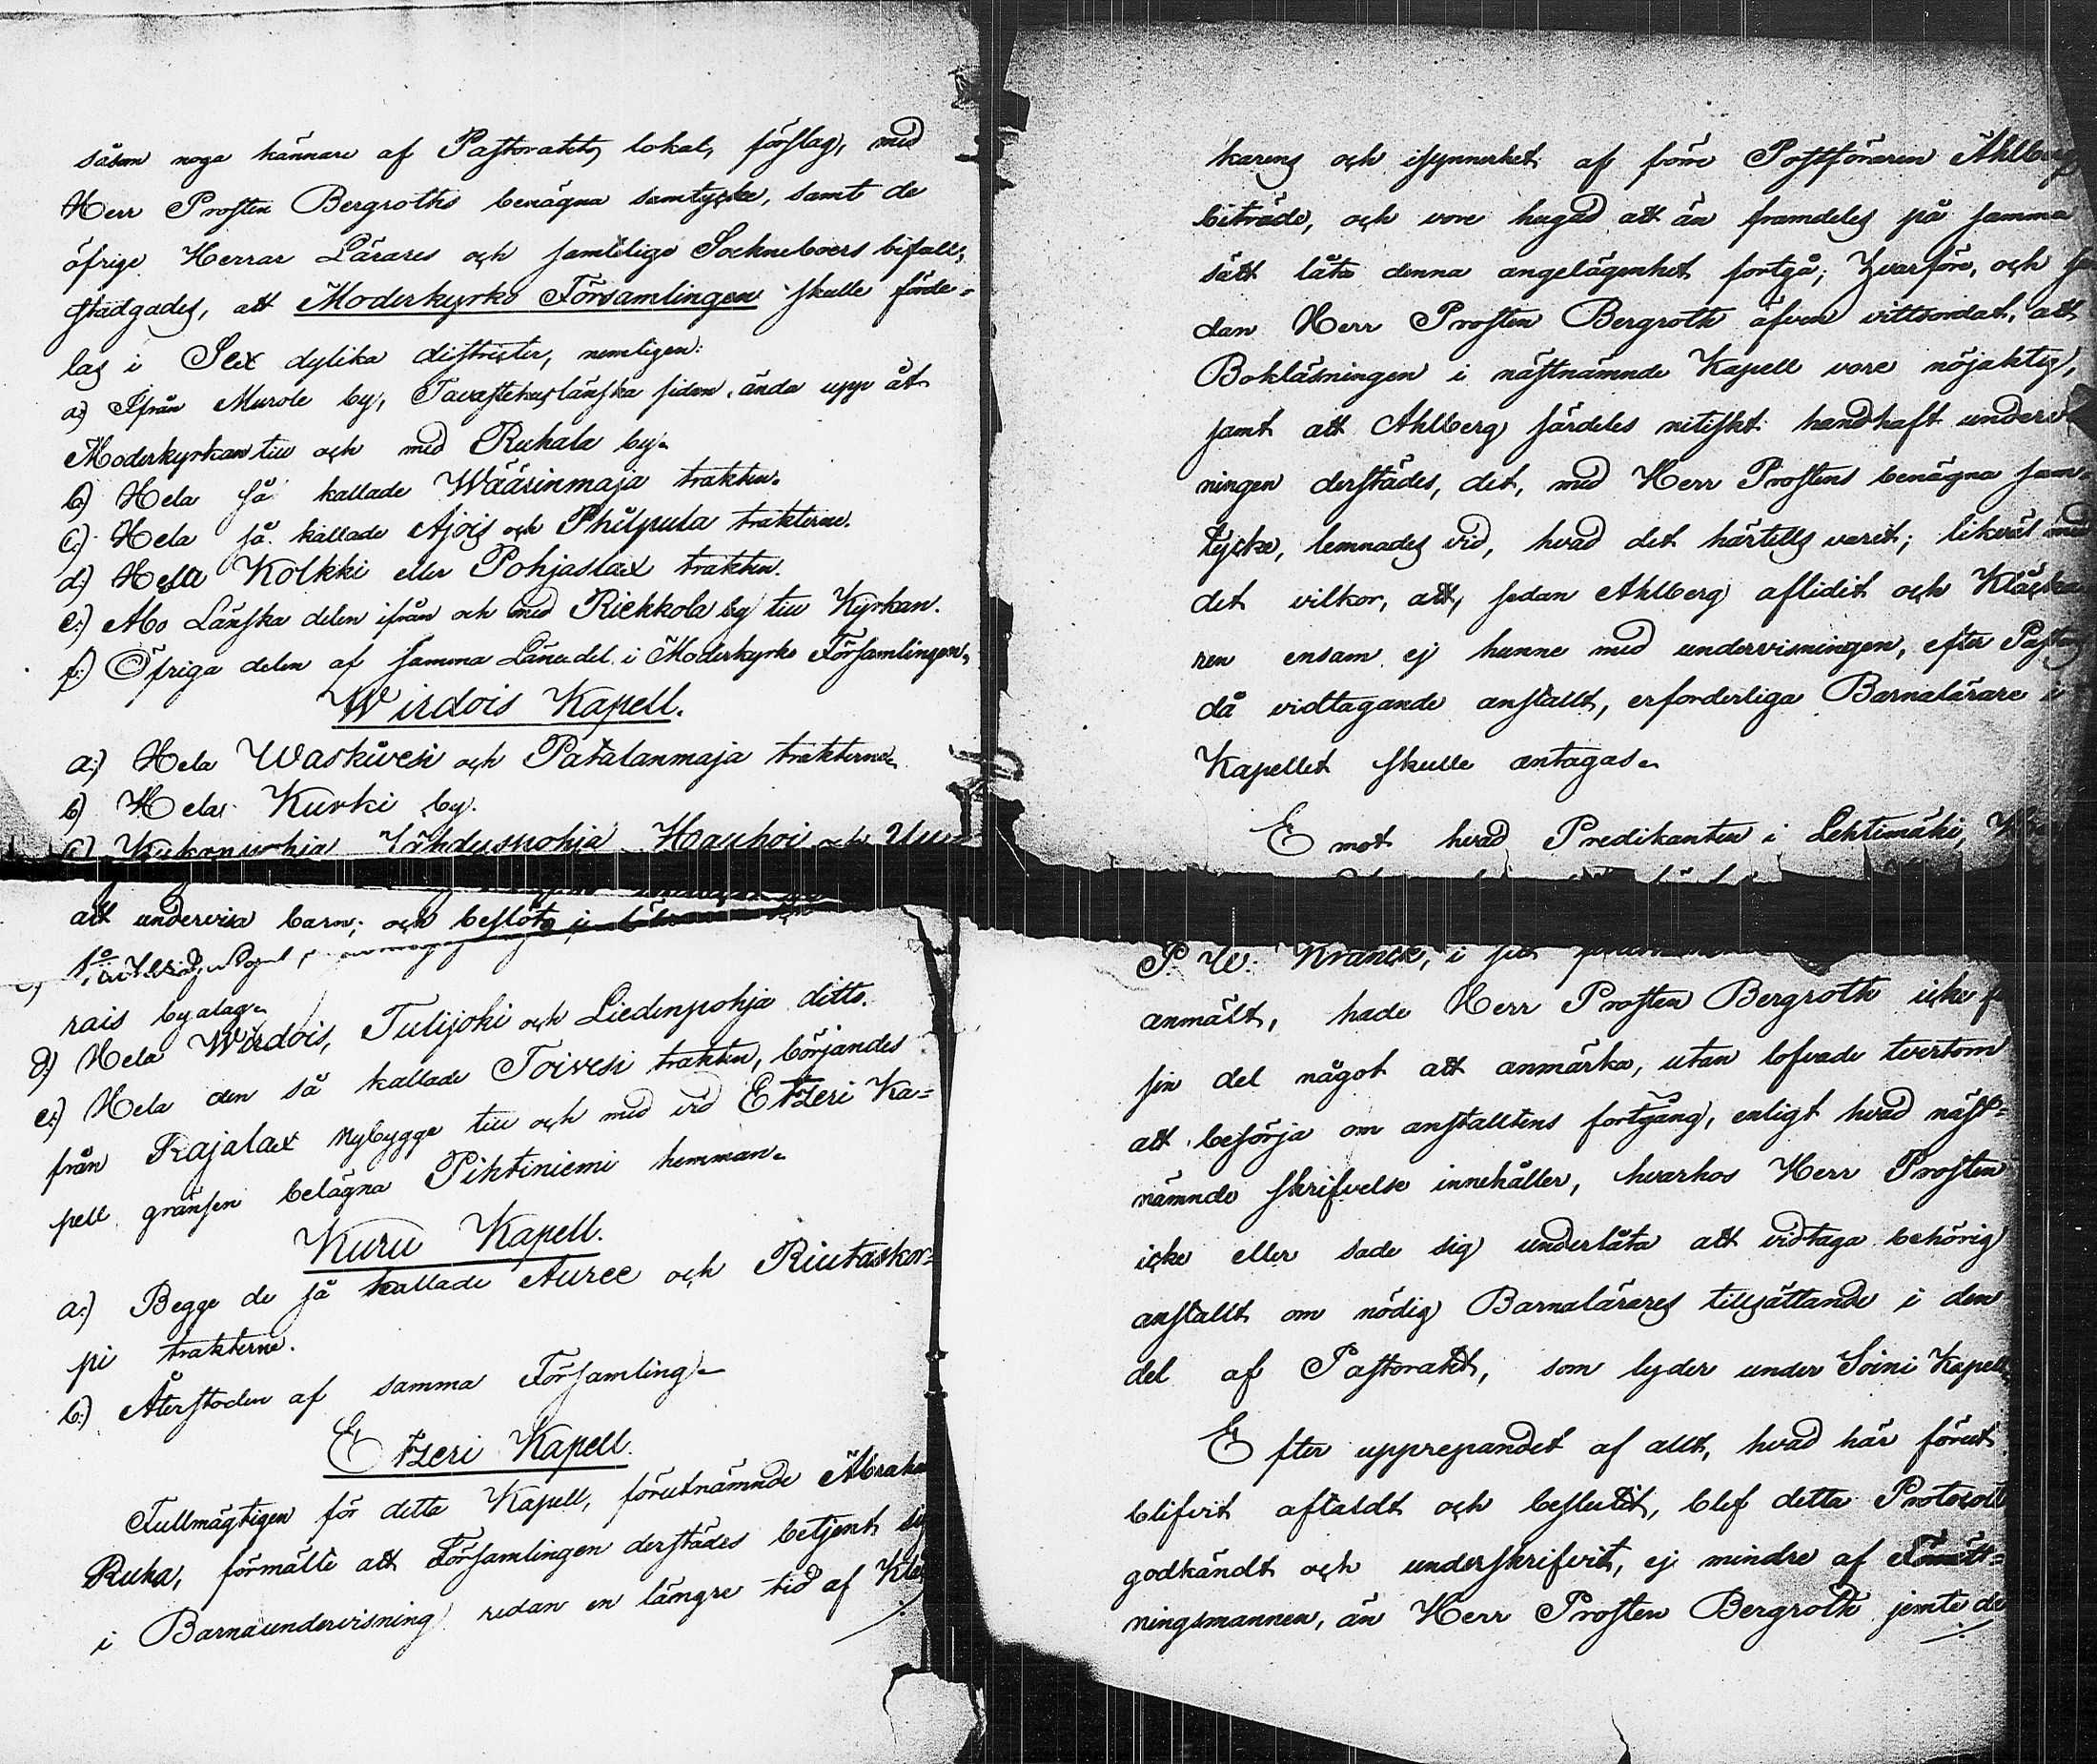 såsom noga kännare af Pastoratets lokal, förslag, med
Herr Prosten Bergroths benägna samtycke, samt de
öfrige Herrar Lärares och samtelige Sockneboers bifall,
stadgades, att Moderkyrko Församlingen skulle förde-
las i Sex dylika districter, nemligen:
a.) Ifrån Murole by, Tavastehuslänska sidan, ända upp åt
Moderkyrkan till och med Ruhala by.
b.) Hela så kallade Wääsinmaja trakten.
c.) Hela så kallade Ajois och Philpula trakterne.
d.) Hela Kolkki eller Pohjaslax trakten.
e.) Abo Länska delen ifrån och med Riekkola by till Kyrkan.
f.) Öfriga delen af samma Länedel i Moderkyrko Församlingen.
Wirdois Kapell.
a.) Hela Waskivesi och Patalanmaja trakterne.
b) Hela Kurki by.
Hauhoi och
att undervisa barn; och beslöts
rais byalag.
d.) Hela Wirdois, Tulijoki och Liedenpohja ditto.
e.) Hela den så kallade Toivesi trakten, börjandes
från Rajalax nybygge till och med vid Etzeri Ka-
pell gränsen belägna Pihtiniemi hemman.
Kuru Kapell.
a.) Begge de så kallade Auree och Riutaskor-
pi trakterne.
b.) Återstoden af samma Församling.
Etzeri Kapell.
Fullmägtigen för detta Kapell, förutnämnde Abraha
Ruha, förmälte att Församlingen derstädes betjent sig
i Barnaundervisning redan en längre tid af Klåc
karens och isynnerhet af förre Postföraren Ahlbergs
biträde, och vore hugad att än framdeles på samma
sätt låta denna angelägenhet fortgå; Hvarföre, och se
dan Herr Prosten Bergroth äfven vittsordat, att
Bokläsningen i nästnämnde Kapell vore nöjaktig,
samt att Ahlberg särdeles nitiskt handhaft undervis
ningen derstädes, det, med Herr Prostens benägna sam-
tycke, lemnades vid, hvad det härtills varit; likväl med
det vilkor, att, sedan Ahlberg aflidit och Klåcka
ren ensam ej hunne med undervisningen, efter Pastors
då vidtagande anstallt, erforderliga Barnalärare i
Kapellet skulle antagas.
Emot hvad Predikanten i Lehtimäki,
P. W. Kranck, i
anmält, hade Herr Prosten Bergroth icke
sin del något att anmärka, utan lofvade tvertom
att besörja om anstalltens fortgång, enligt hvad näst-
nämnde skrifvelse innehåller, hvarhos Herr Prosten
icke eller sade sig underlåta att vidtaga behörig
anstallt om nödig Barnalärares tillsättande i den
del af Pastoratet, som lyder under Soini Kapell.
Efter upprepandet af allt, hvad här förut
blifvit aftaldt och beslutit, blef detta Protocoll
godkändt och underskrifvit, ej mindre af Förrätt-
ningsmannen, än Herr Prosten Bergroth jemte de